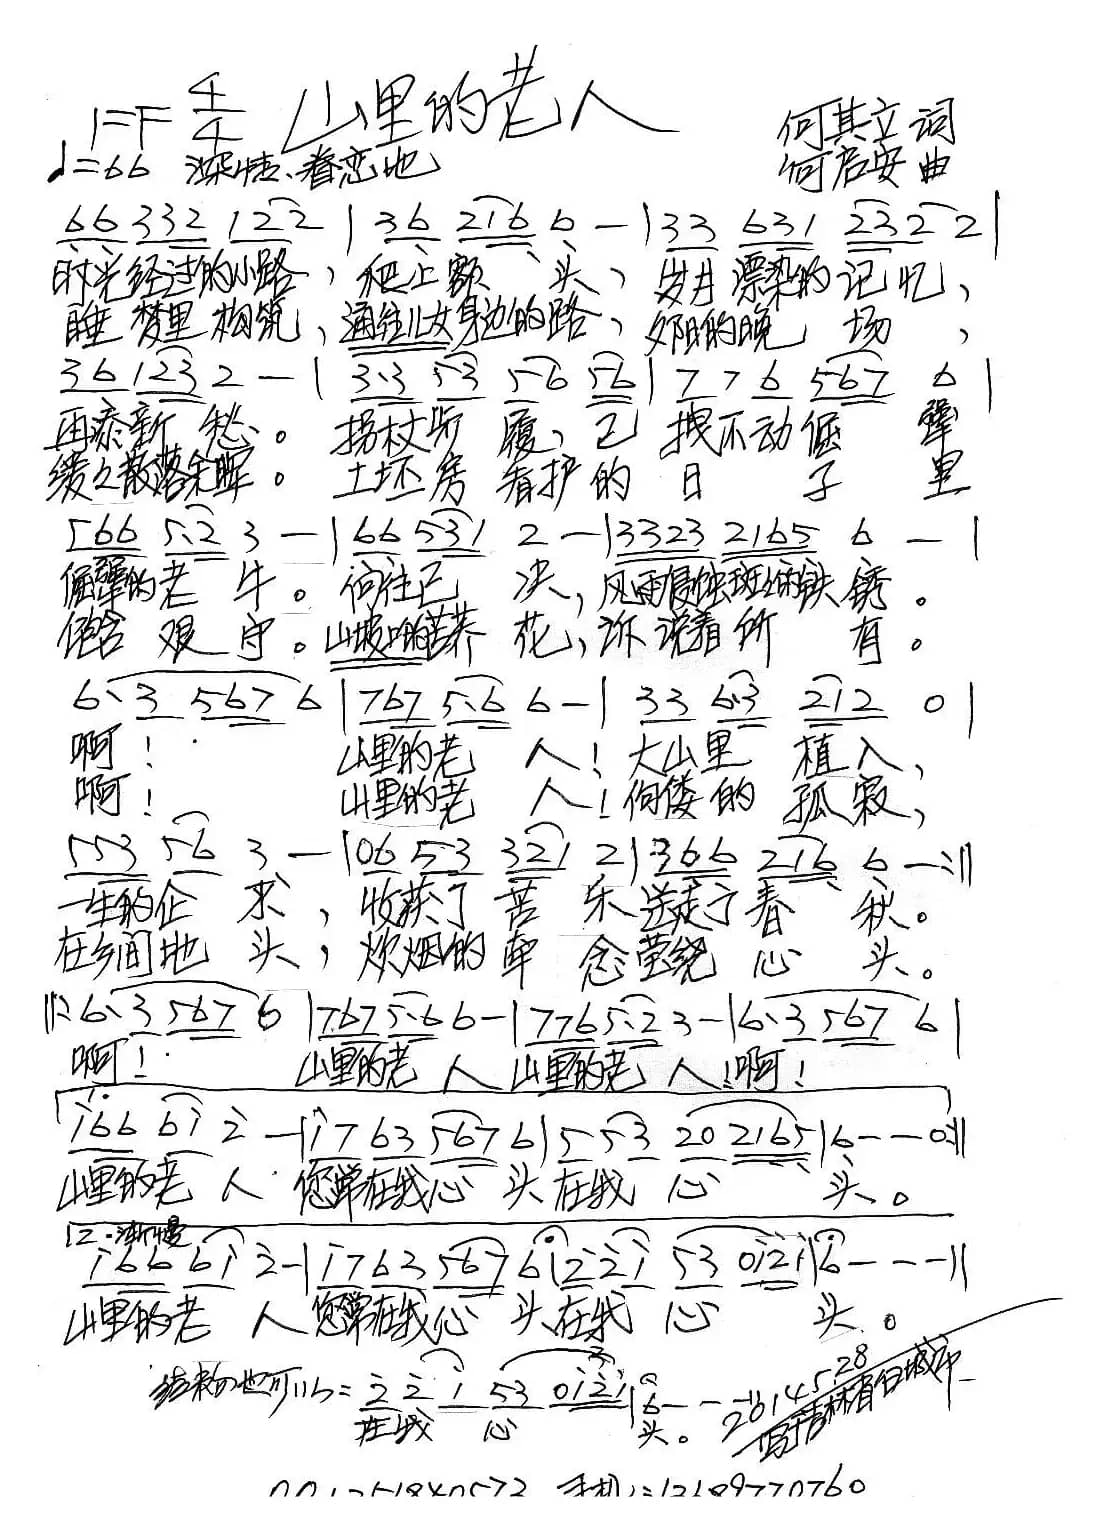 1=F 4/4 山里的老人
何其立 词
♩=66 深情、眷恋地
何启安 曲
66 332 122 | 36 216 6 - | 33 631 232 2 |
时光经过的小路，爬上额头，岁月漂染的记忆，
睡梦里构筑，通往儿女身边的路，夕阳的晚场，
36 123 2 - | 3·3 53 56 56 | 7 7 6 567 6 |
再添新愁。拐杖步履，已拽不动倔犟
缓缓散落余晖。土坯房看护的日子里
566 5·2 3 - | 66 531 2 - | 3323 2165 6 - |
倔犟的老牛。向往已决，风雨侵蚀斑斑的铁锈。
饱含艰守。山坡的苦荞花，诉说着所有。
6·3 567 6 | 767 5·6 6 - | 33 6·3 212 0 |
啊！山里的老人！大山里植入，
啊！山里的老人！佝偻的孤寂，
553 56 3 - | 06 53 321 2 | 366 216 6 - :||
一生的企求，收获了苦乐送走了春秋。
在乡间地头，炊烟的牵念萦绕心头。
||: 6·3 567 6 | 767 5·6 6 - | 776 5·2 3 - | 6·3 567 6 |
啊！山里的老人山里的老人！啊！
1.
i66 6i 2 - | i7 63 567 6 | 5 5 3 20 2165 | 6 - - 0 :||
山里的老人 您常在我心头在我心头。
2.渐慢
i66 6i 2 - | i7 63 567 6 | 2 2 i 53 0i2i | 6 - - - ||
山里的老人 您常在我心头在我心头。
2 2 i 53 0i2i | 6 - - - ||
在我心头。
2014 5 28
写于吉林省白城市